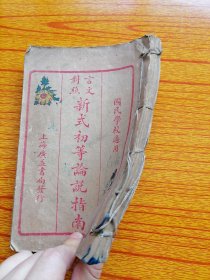 國民學校適用
言文對照
新式初等論說指南
上海廣益書局發行